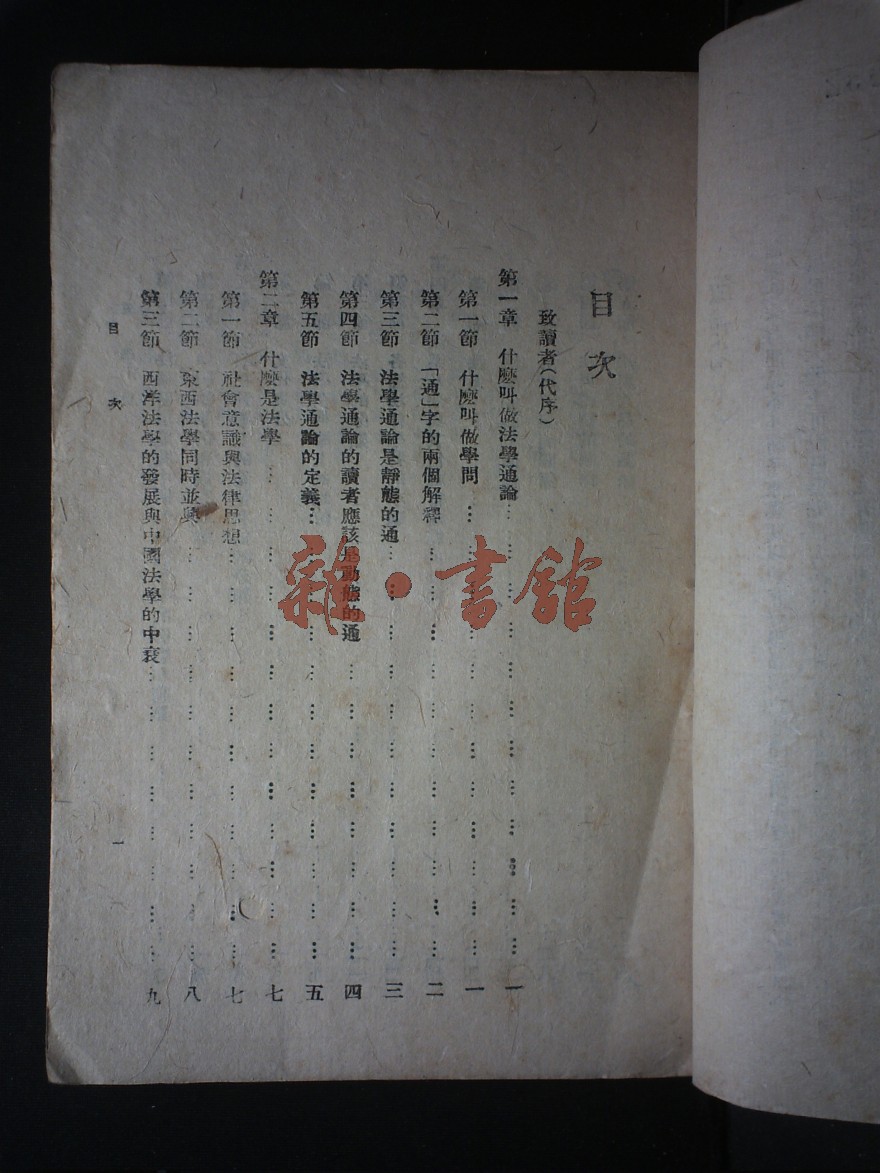 目次
致讀者(代序)
第一章 什麼叫做法學通論…………………………………一
第一節 什麼叫做學問…………………………………一
第二節 「通」字的兩個解釋…………………………………二
第三節 法學通論是靜態的通…………………………………三
第四節 法學通論的讀者應該是動態的通…………………………………四
第五節 法學通論的定義…………………………………五
第二章 什麼是法學…………………………………七
第一節 社會意識與法律思想…………………………………七
第二節 東西法學同時並興…………………………………八
第三節 西洋法學的發展與中國法學的中衰…………………………………九
目次
一
雜·書館